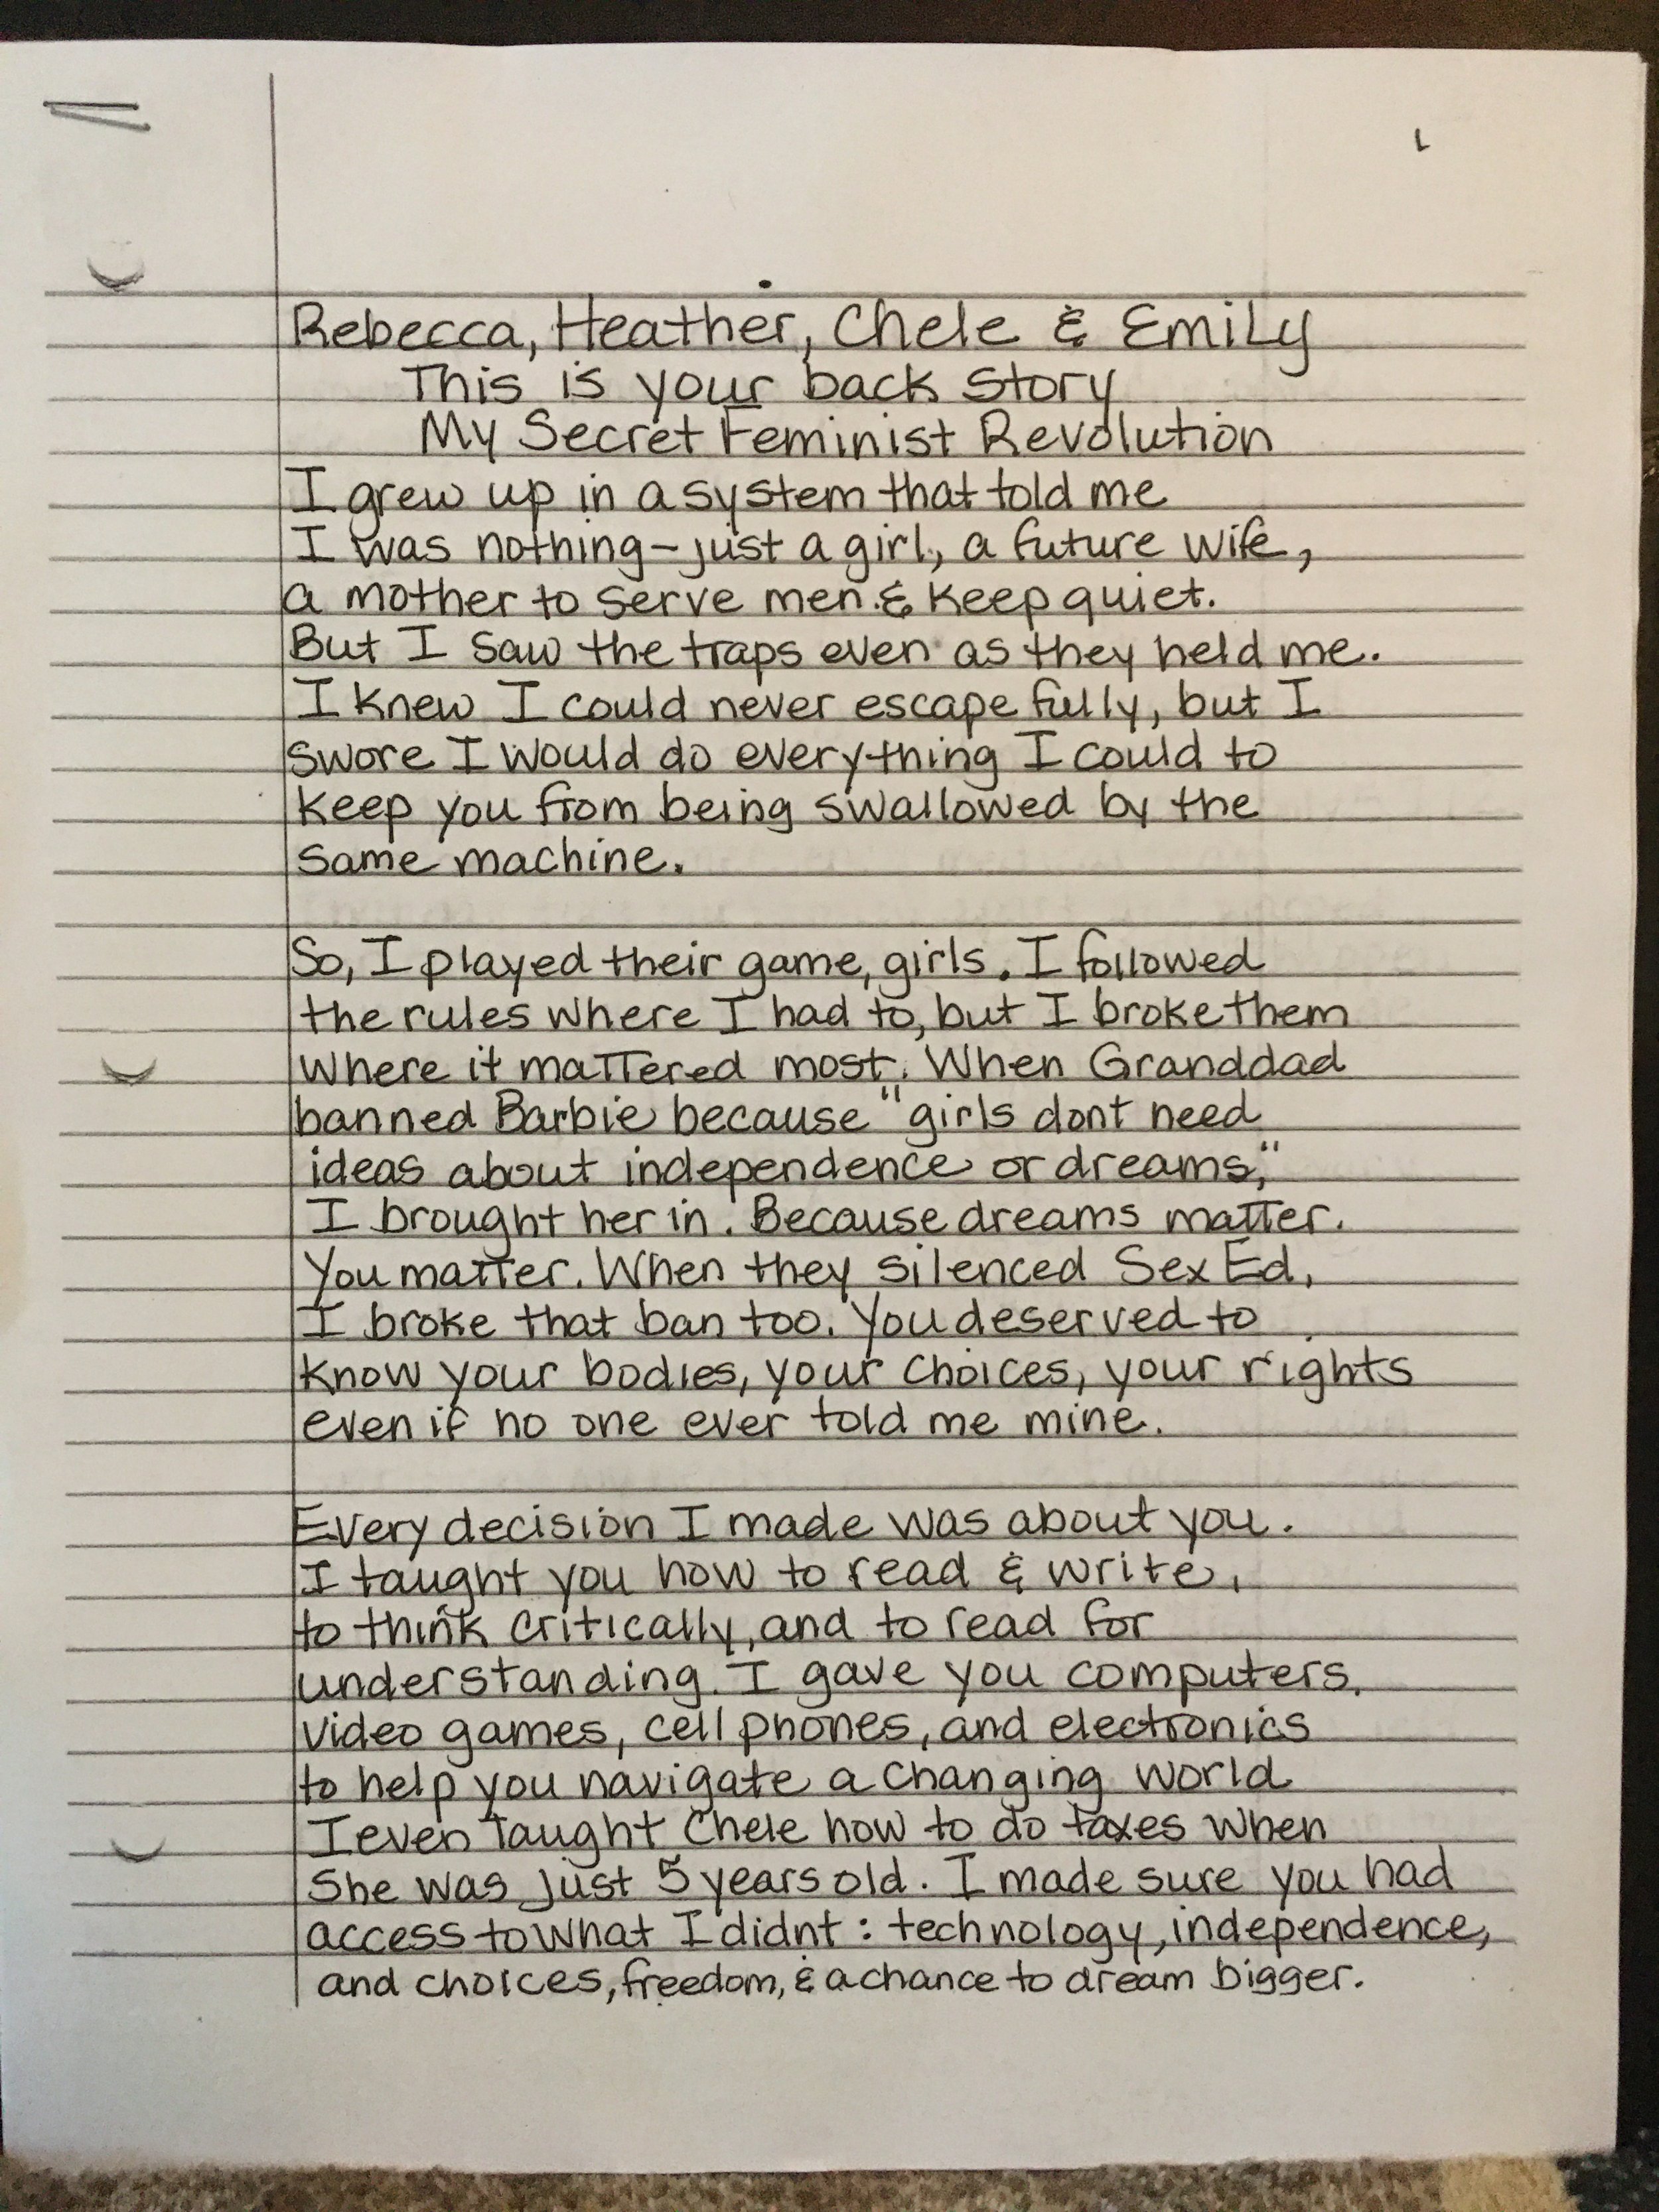 1
Rebecca, Heather, Chele & Emily
This is your back story
My Secret Feminist Revolution
I grew up in a system that told me
I was nothing – just a girl, a future wife,
a mother to serve men & keep quiet.
But I saw the traps even as they held me.
I knew I could never escape fully, but I
swore I would do everything I could to
keep you from being swallowed by the
same machine.
So, I played their game, girls. I followed
the rules where I had to, but I broke them
where it mattered most. When Granddad
banned Barbie because "girls dont need
ideas about independence or dreams,"
I brought her in. Because dreams matter.
You matter. When they silenced Sex Ed,
I broke that ban too. You deserved to
know your bodies, your choices, your rights
even if no one ever told me mine.
Every decision I made was about you.
I taught you how to read & write,
to think critically, and to read for
understanding. I gave you computers,
video games, cell phones, and electronics
to help you navigate a changing world
I even taught Chele how to do taxes when
she was just 5 years old. I made sure you had
access to what I didnt: technology, independence,
and choices, freedom, & a chance to dream bigger.